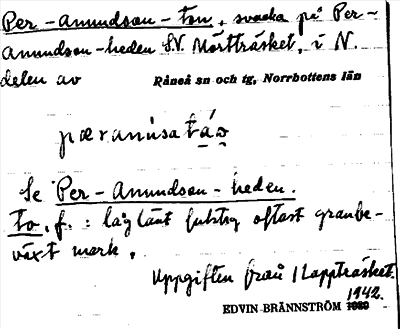 Per-Amundson-ton, svacka på Per-
Amundson-heden S.V. Mörtträsket, i N.
delen av Råneå sn och tg, Norrbottens län
pæranusatáo
Se Per-Amundson-heden.
to, f. : låglänt fuktig oftast granbe-
växt mark.
Uppgiften från Lappträsket.
1942.
EDVIN BRÄNNSTRÖM